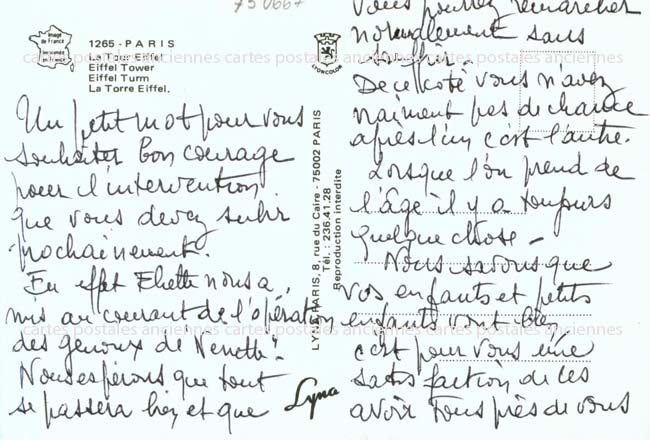 750667
Image
de France
1265 - PARIS
La Tour Eiffel
Eiffel Tower
Eiffel Turm
La Torre Eiffel.
LYONCOLOR
Un petit mot pour vous
souhaiter bon courage
pour l'intervention
que vous devez subir
prochainement.
En effet Eliette nous a
mis au courant de l'opération
des genoux de "Nenette".
Nous espérons que tout
se passera bien et que
LYNA-PARIS, 8, rue du Caire - 75002 PARIS
Tél. : 236.41.28
Reproduction interdite
Lyna
vous pourrez remarcher
normalement sans
souffrir.
De ce côté vous n'avez
vraiment pas de chance
après l'un c'est l'autre.
Lorsque l'on prend de
l'âge il y a toujours
quelque chose -
Nous savons que
vos enfants et petits
enfants vont bien
c'est pour vous une
satisfaction de les
avoir tous près de vous
cartes postales anciennes cartes postales anciennes
cartes postales anciennes cartes postales anciennes